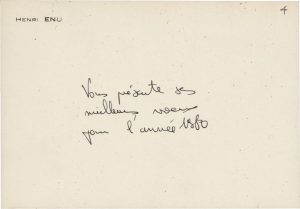 4
HENRI ENU
Vous présente ses
meilleurs voeux
pour l'année 1980